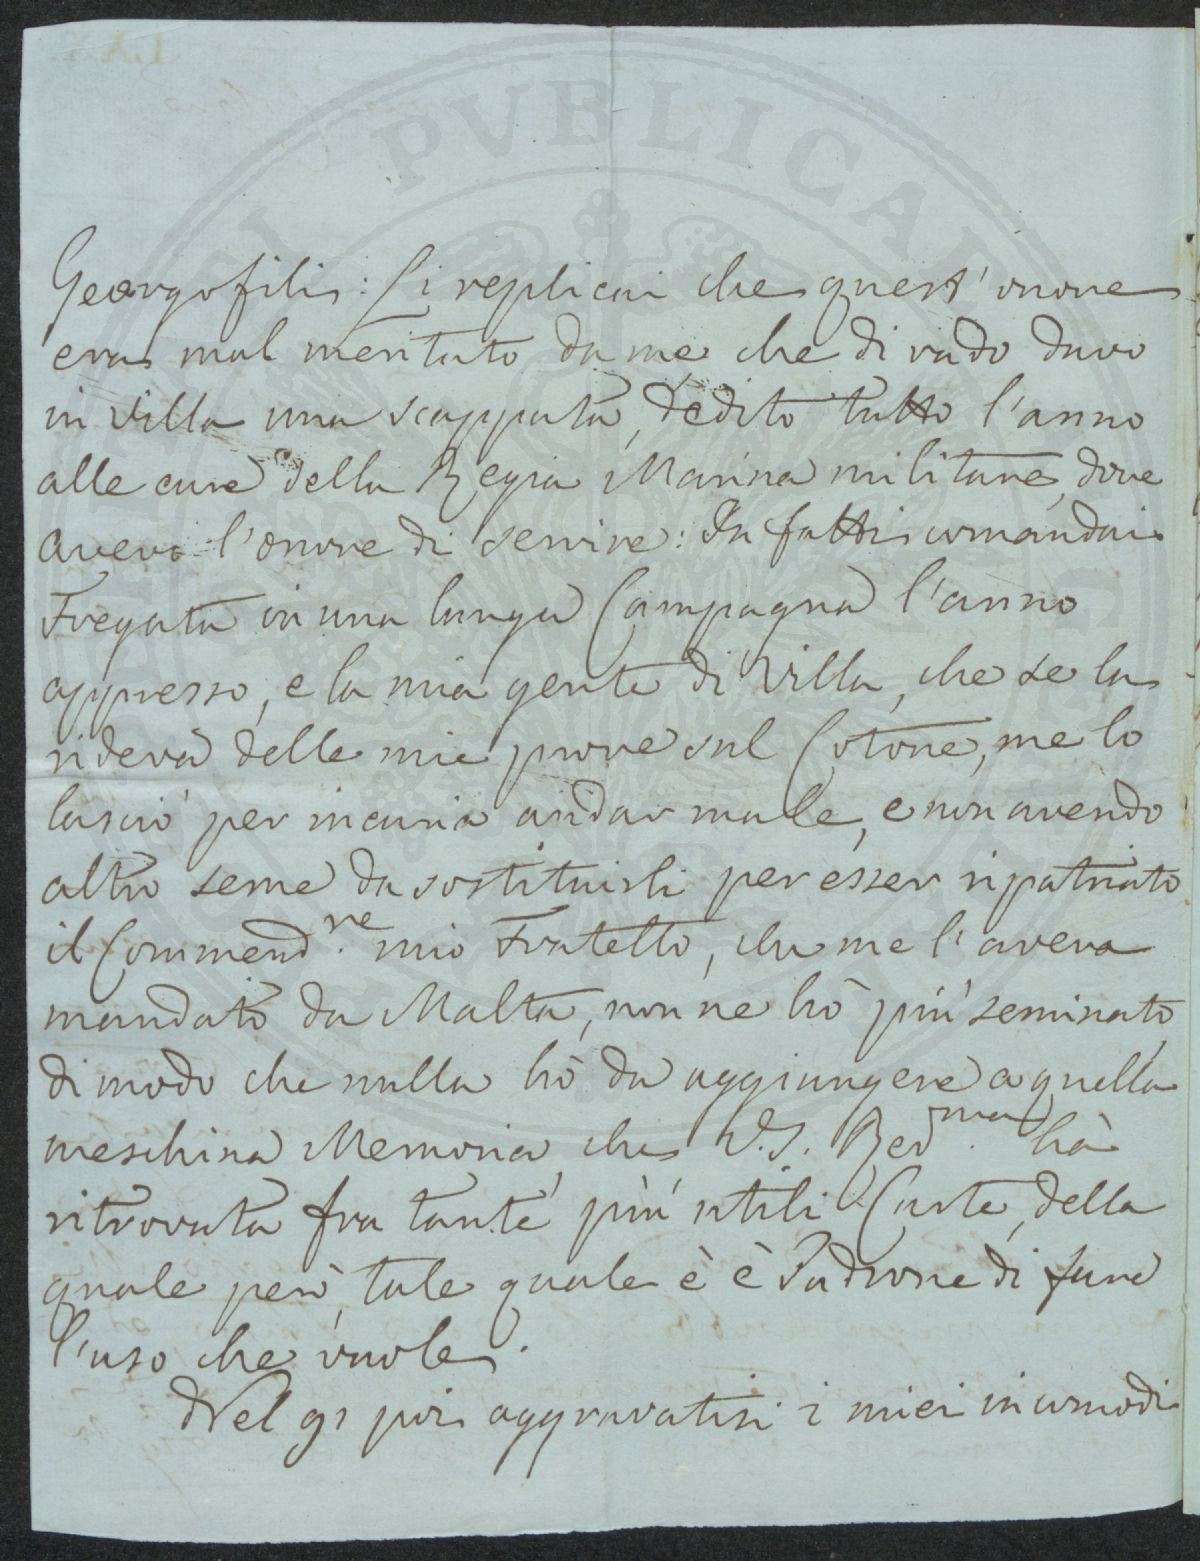 Georgofili: Li replicai che quest'onore
era mal meritato da me che di rado davo
in Villa una scappata, dedito tutto l'anno
alle cure della Regia Marina militare, dove
avevo l'onore di servire: In fatti comandai
Fregata in una lunga Campagna l'anno
appresso, e la mia gente di Villa, che se la
rideva delle mie prove sul Cotone, me lo
lasciò per incuria andar male, e non avendo
altro seme da sostituirli per esser ripatriato
il Commend.re mio Fratello, che me l'aveva
mandato da Malta, non ne hò più seminato,
di modo che nulla hò da aggiungere a quella
meschina Memoria, che V.S. Red.ma hà
ritrovata fra tante più utili Carte, della
quale però, tale quale è è Padrone di fare
l'uso che vuole.
Nel 91 poi aggravatisi i miei incomodi